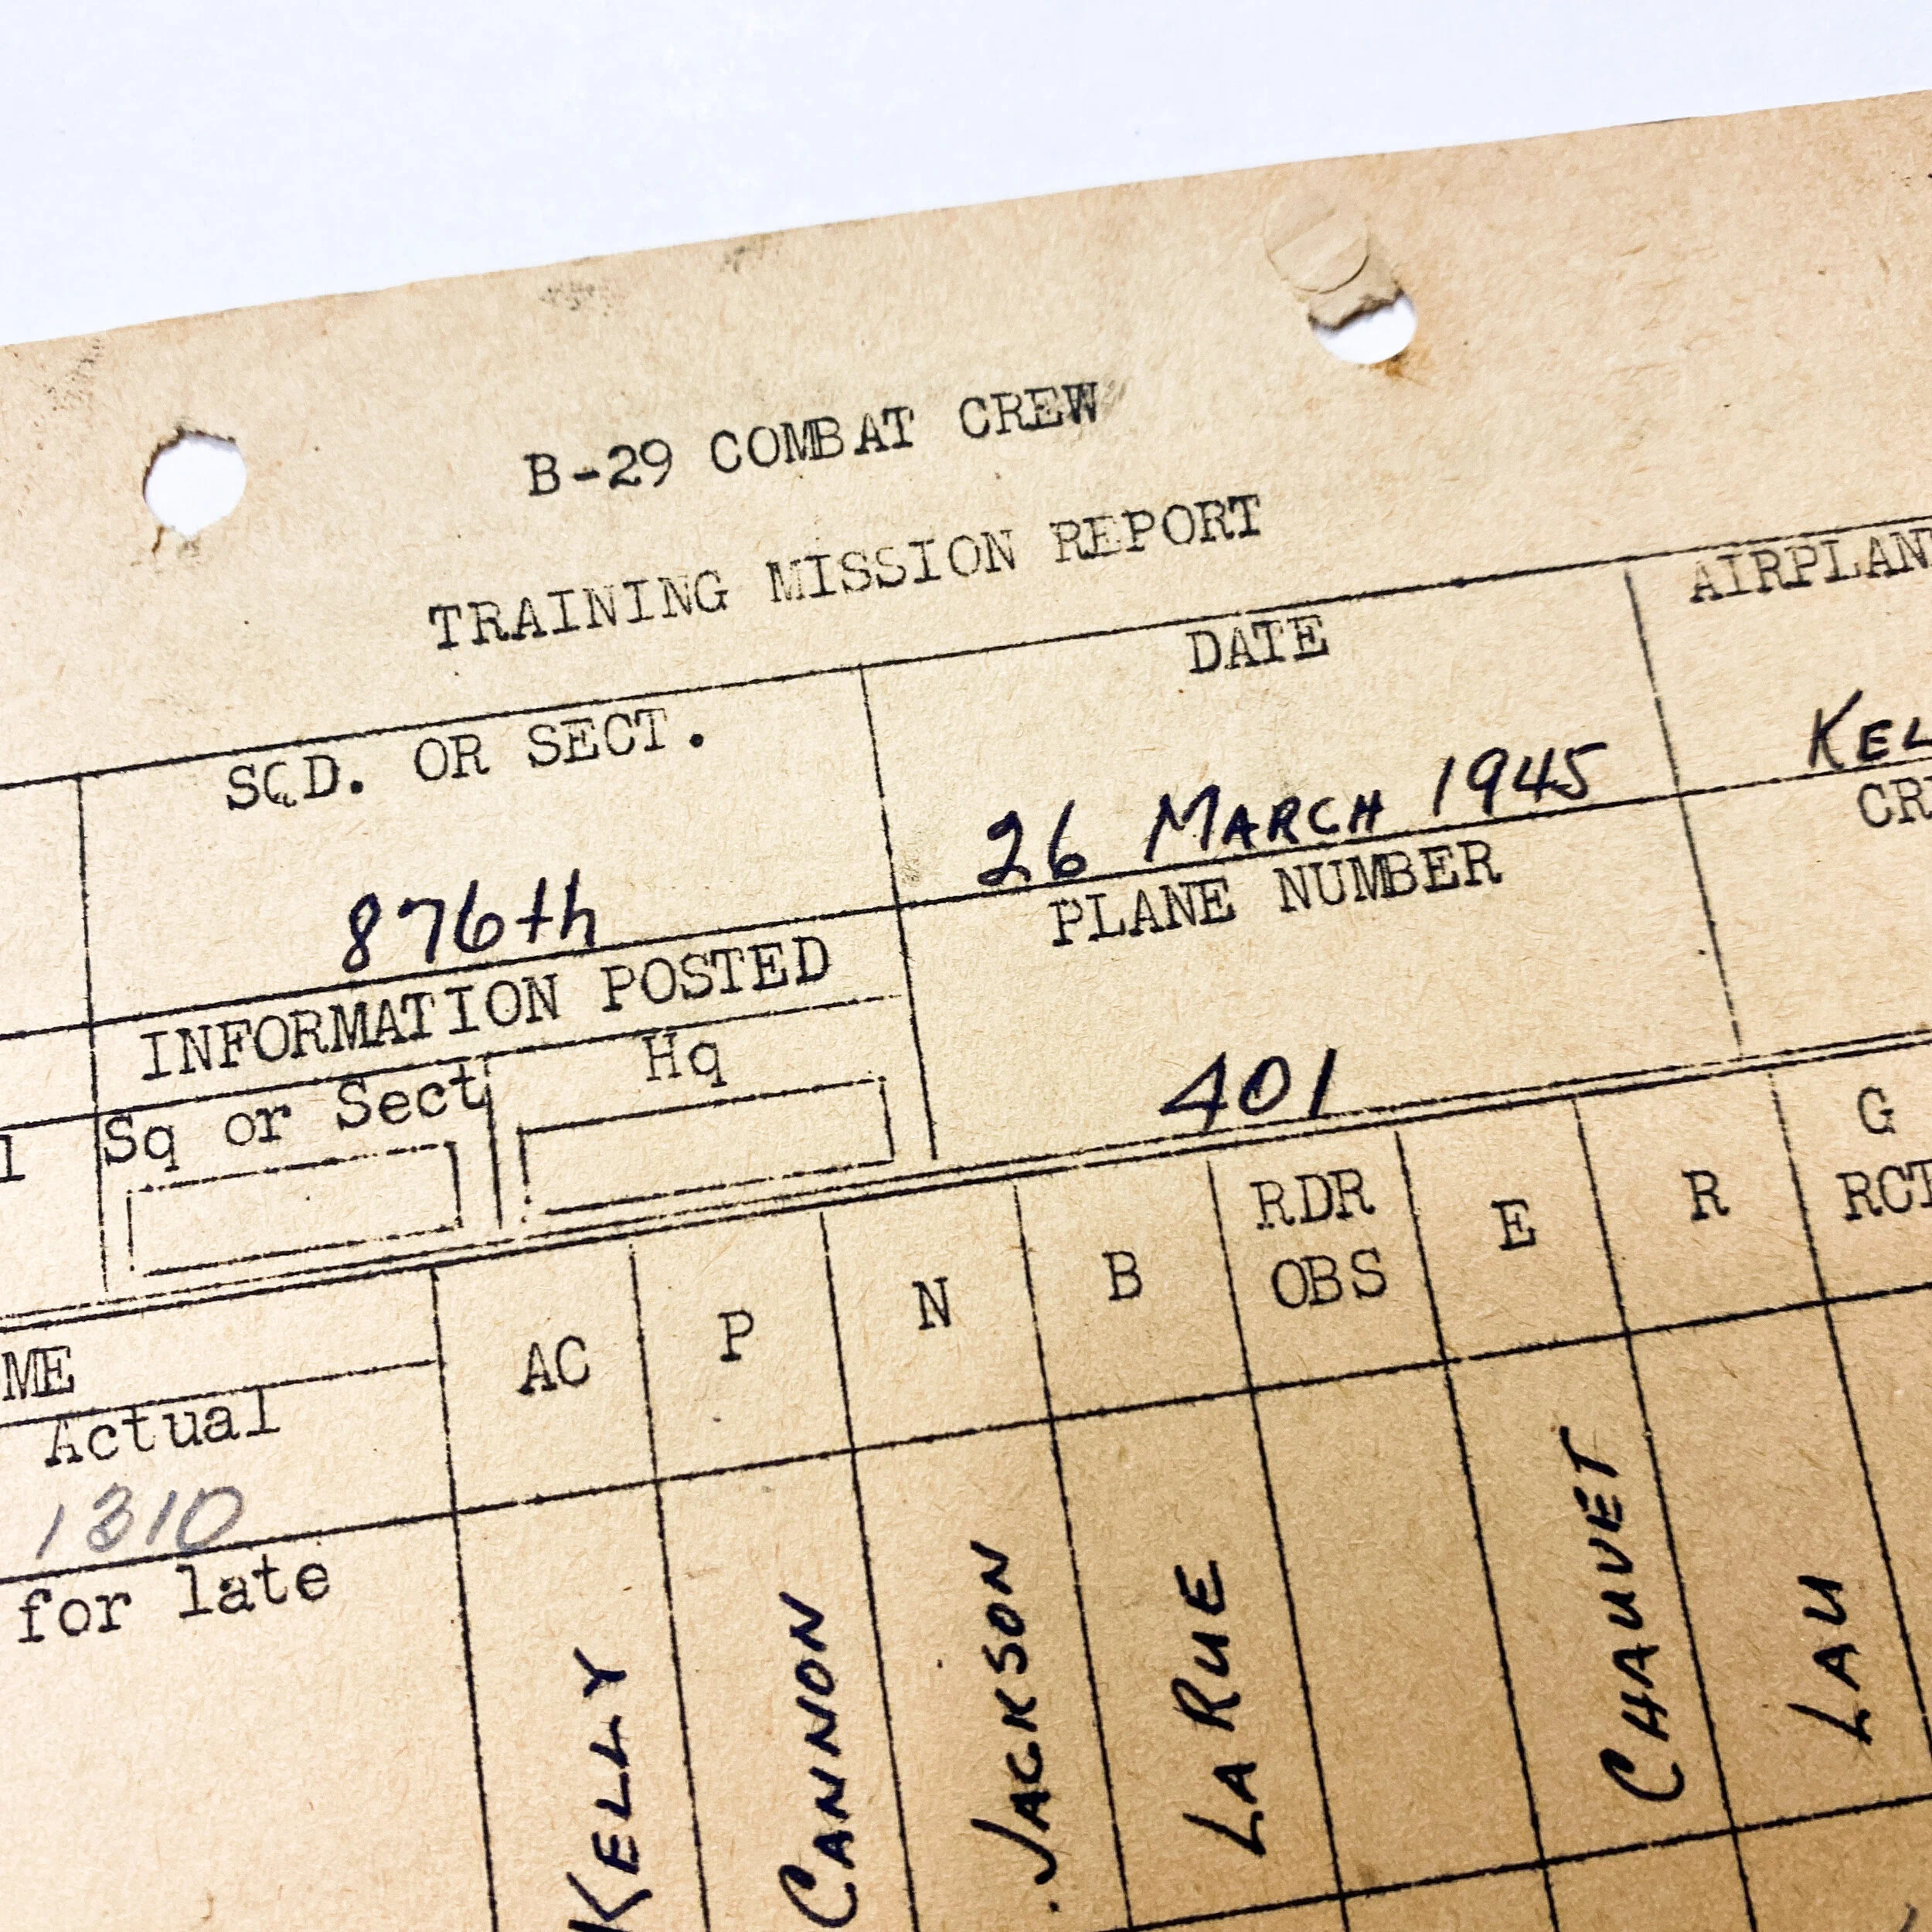 B-29 COMBAT CREW
TRAINING MISSION REPORT
SQD. OR SECT.
DATE
AIRPLAN
876th
26 MARCH 1945
KEL
INFORMATION POSTED
PLANE NUMBER
CR
Sq or Sect
Hq
401
ME
AC
P
N
B
RDR OBS
E
R
G
RCT
Actual
1310
for late
KELLY
CANNON
JACKSON
LARUE
CHAUVET
LAU